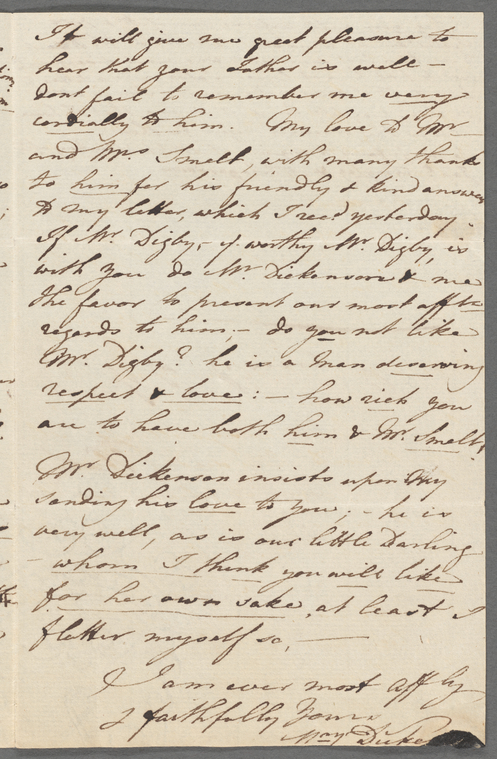 It will give me great pleasure to
hear that your Father is well –
dont fail to remember me very
cordially to him. My love to Mr
and Mrs Smelt, with many thanks
to him for his friendly & kind answer
to my letter, which I recd yesterday
If Mr. Digby, – ye worthy Mr. Digby, is
with you do Mr. Dickenson & me
the favor to present our most affte
regards to him; – do you not like
Mr. Digby? he is a Man deserving
respect & love: – how rich you
are to have both him & Mr. Smelt!
Mr. Dickenson insists upon my
sending his love to you; – he is
very well, as is our little Darling
– whom I think you will like
for her own sake, at least I
flatter myself so, –
I am ever most affly
& faithfully Yours
Mary Dicke